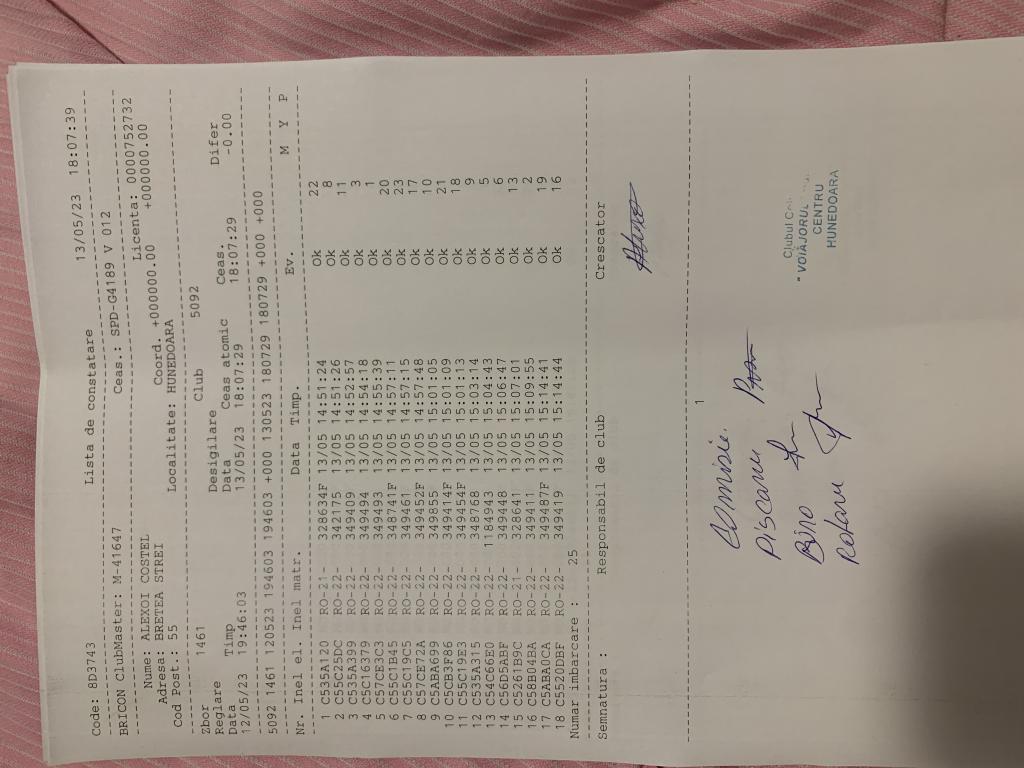 Code: 8D3743 Lista de constatare 13/05/23 18:07:39
BRICON ClubMaster: M-41647 Ceas.: SPD-G4189 V 012
Nume: ALEXOI COSTEL Licenta: 0000752732
Adresa: BRETEA STREI Coord. +000000.00 +000000.00
Cod Post.: 55 Localitate: HUNEDOARA
Zbor 1461 Club 5092
Reglare Desigilare
Data Timp Data Ceas atomic Ceas. Difer
12/05/23 19:46:03 13/05/23 18:07:29 18:07:29 -0.00
5092 1461 120523 194603 194603 +000 130523 180729 180729 +000 +000
Nr. Inel el. Inel matr. Data Timp. Ev. M Y P
1 C535A120 RO-21- 328634F 13/05 14:51:24 Ok 22
2 C55C25DC RO-22- 342175 13/05 14:51:26 Ok 8
3 C535A399 RO-22- 349409 13/05 14:52:57 Ok 11
4 C5C16379 RO-22- 349494 13/05 14:54:18 Ok 3
5 C57CE3C3 RO-22- 349493 13/05 14:55:39 Ok 1
6 C55C1945 RO-22- 348741F 13/05 14:57:11 Ok 20
7 C55C19C5 RO-22- 349461 13/05 14:57:15 Ok 23
8 C57CE72A RO-22- 349452F 13/05 14:57:48 Ok 17
9 C5ABA699 RO-22- 349855 13/05 15:01:05 Ok 10
10 C5CB3F86 RO-22- 349414F 13/05 15:01:09 Ok 21
11 C55C19E3 RO-22- 349454F 13/05 15:01:13 Ok 18
12 C535A315 RO-22- 348768 13/05 15:03:14 Ok 9
13 C54C66E0 RO-22- 1184943 13/05 15:04:43 Ok 5
14 C56D5ABF RO-22- 349448 13/05 15:06:47 Ok 6
15 C5261B9C RO-21- 328641 13/05 15:07:01 Ok 13
16 C58B04BA RO-22- 349411 13/05 15:09:55 Ok 2
17 C5ABA0CA RO-22- 349487F 13/05 15:14:41 Ok 19
18 C5520DBF RO-22- 349419 13/05 15:14:44 Ok 16
Numar imbarcare : 25
Semnatura : Responsabil de club Crescator
1
Comisie.
Piscanu
Biro
Rotaru
Clubul
"VOIAJORUL
CENTRU
HUNEDOARA